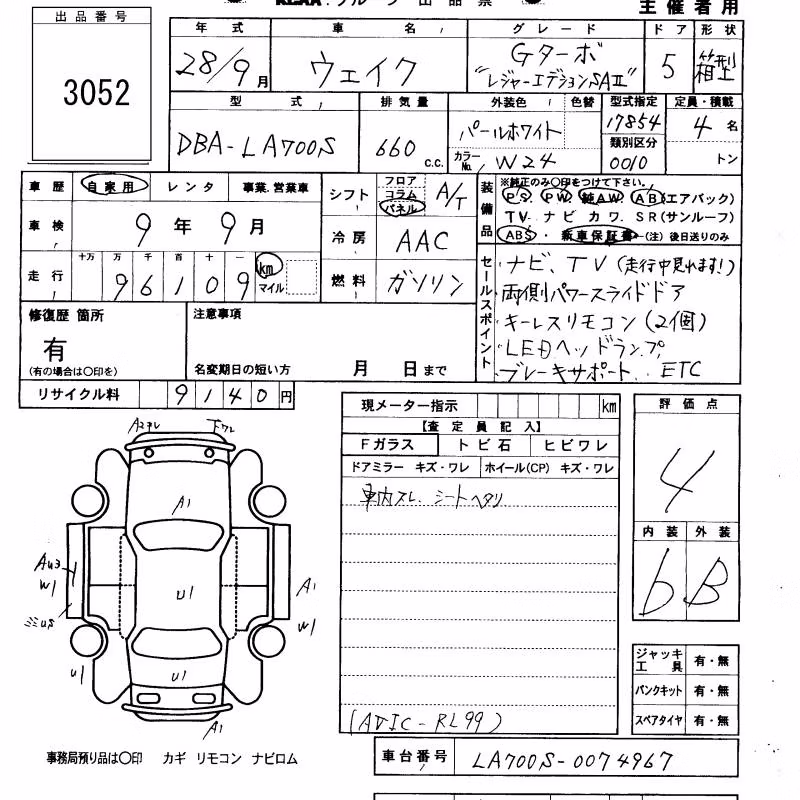 出品番号
3052
主催者用
年式 車名 グレード ドア 形状
28/9月 ウェイク Gターボ "レジャーエディションSAⅡ" 5 箱型
型式 排気量 外装色 色替 型式指定 定員・積載
DBA-LA700S 660 c.c. パールホワイト 17854 4名
カラーNo. W24 類別区分 0010 トン
車歴 自家用 レンタ 事業.営業車
車検 9年9月
走行 十万 万 千 百 十 一
96109 km マイル
シフト フロア コラム パネル A/T
冷房 AAC
燃料 ガソリン
装備品
※純正のみ〇印をつけて下さい。
PS PW 純AW. AB(エアバック)
TV. ナビ カワ. SR(サンルーフ)
ABS・新車保証書←(注)後日送りのみ
セールスポイント
ナビ、TV(走行中見れます!)
両側パワースライドドア
キーレスリモコン(2個)
LEDヘッドランプ
ブレーキサポート. ETC
修復歴 箇所
有
(有の場合は〇印を)
注意事項
名変期日の短い方 月 日まで
リサイクル料 9140円
現メーター指示 km
【査定員記入】
Fガラス トビ石 ヒビワレ
ドアミラー キズ・ワレ ホイール(CP) キズ・ワレ
車内スレ. シートヘタリ
(AVIC-RL99)
評価点
4
内装 外装
b B
ジャッキ工具 有・無
パンクキット 有・無
スペアタイヤ 有・無
A1
A1
W1
U1
A1
W1
U1
U1
A1
事務局預り品は〇印 カギ リモコン ナビロム
車台番号 LA700S-0074967